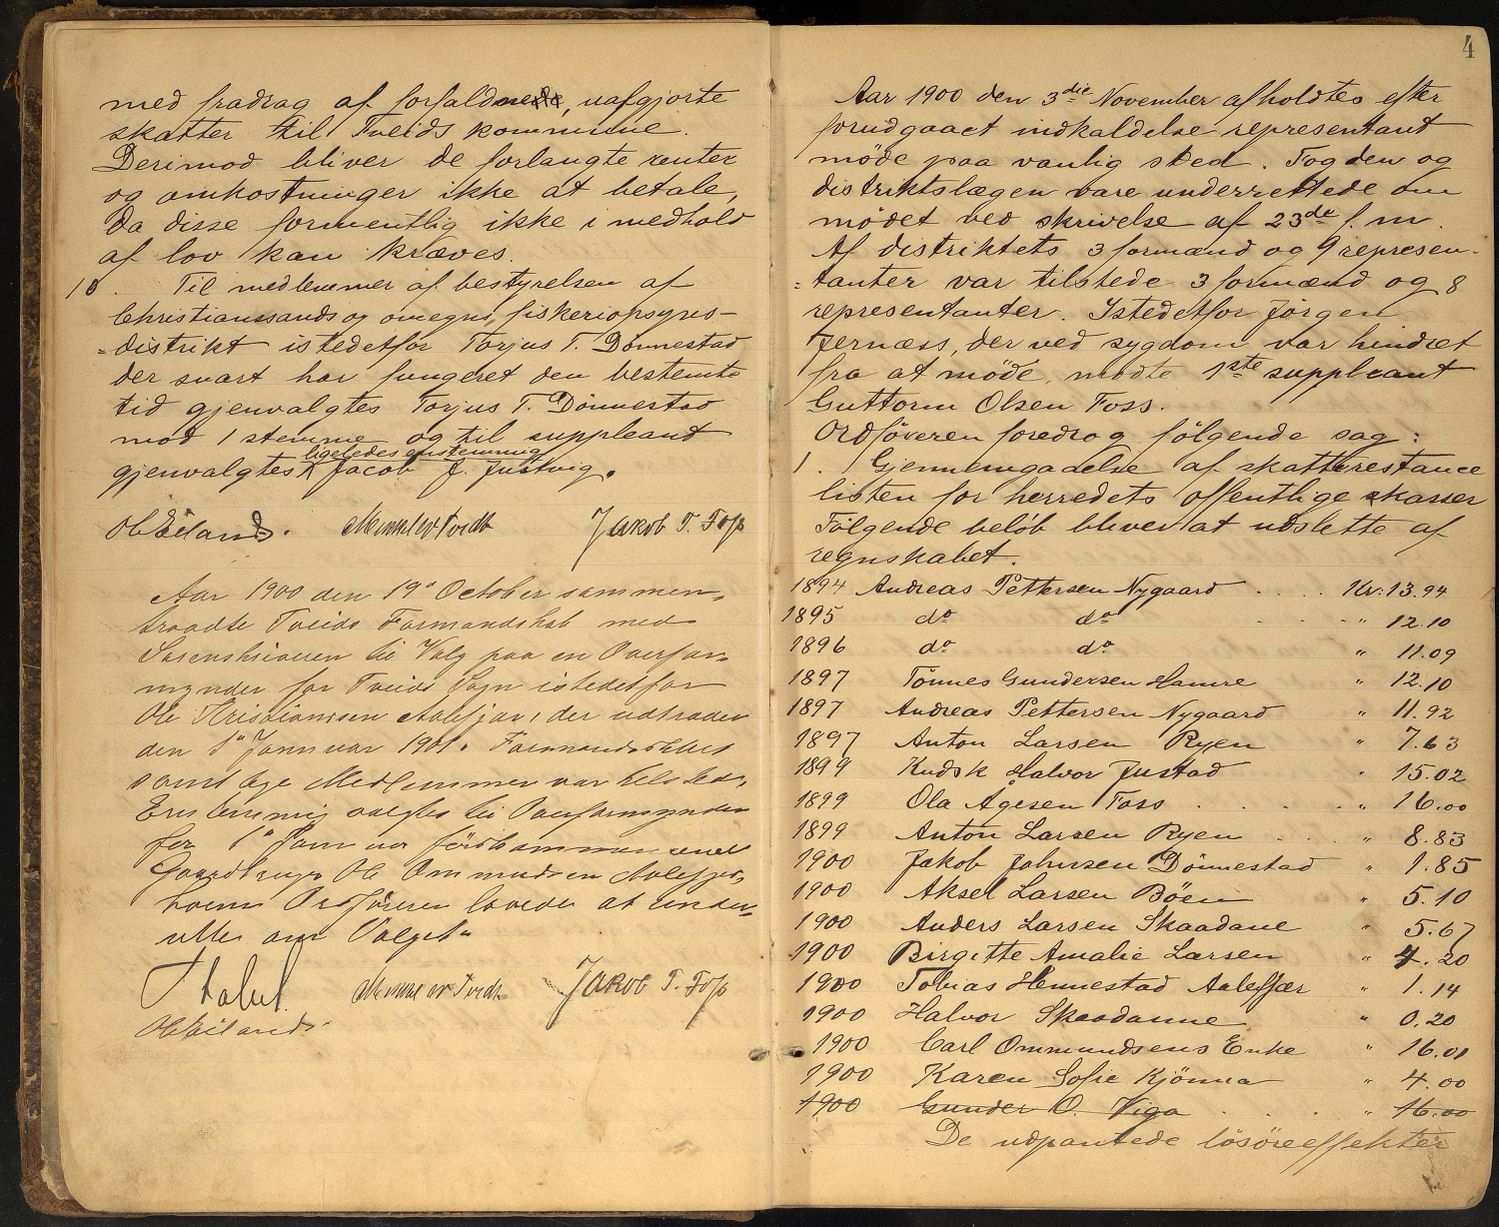 med fradrag af forfaldne, uafgjorte
skatter til Tveids kommune.
Derimod bliver de forlangte renter
og omkostninger ikke at betale,
da disse formentlig ikke i medhold
af lov kan kræves.
10. Til medlemmer af bestyrelsen af
Christianssands og omegns fiskeriopsyns-
=distrikt istedetfor Torjus T. Dønnestad
der snart har fungeret den bestemte
tid gjenvalgtes Torjus T. Dønnestad
mod 1 stemme og til suppleant
ligeledes enstemmig
gjenvalgtes Jacob J. Justvig.
O Eiland. Jakob T. Foss
Aar 1900 den 19de October sammen-
traadte Tveids Formandskab med
Sorenskriveren til Valg paa en Overfor-
mynder for Tveids Sogn istedetfor
Ole Kristiansen Aalefjær, der udtræder
den 1ste Januar 1901. Formandskabets
samtlige Medlemmer var tilstede.
Enstemmig valgtes til Overformynder
for 1ste Januar førstkommende
Gaardbruger Ole Ommundsen Aalefjær,
hvem Ordføreren lovede at under-
rette om Valget.
Jakob T. Foss
O Eiland.
4
Aar 1900 den 3die November afholdtes efter
forudgaaet indkaldelse representant
møde paa vanlig sted. Fogden og
distriktslægen vare underrettede om
mødet ved skrivelse af 23de f. m.
Af distriktets 3 formænd og 9 represen-
=tanter var tilstede 3 formænd og 8
representanter. Istedetfor Jørgen
Jernæss, der ved sygdom var hindret
fra at møde, mødte 1ste suppleant
Guttorm Olsen Foss.
Ordføreren foredrog følgende sag:
1. Gjennemgaaelse af skatterestance
listen for herredets offentlige kasser
Følgende beløb bliver at udslette af
regnskabet.
1894 Andreas Pettersen Nygaard . . . . Kr. 13.94
1895 do do . . . " 12.10
1896 do do " 11.09
1897 Tönnes Gundersen Hamre " 12.10
1897 Andreas Pettersen Nygaard " 11.92
1897 Anton Larsen Ryen " 7.63
1899 Kudsk Halvor Justad " 15.02
1899 Ola Ågesen Foss . . . . " 16.00
1899 Anton Larsen Ryen . . . " 8.83
1900 Jakob Johnsen Dönnestad " 1.85
1900 Aksel Larsen Böen " 5.10
1900 Anders Larsen Skaadane " 5.67
1900 Birgitte Amalie Larsen " 4.20
1900 Tobias Hennestad Aalefjær " 1.14
1900 Halvor Skaadanne " 0.20
1900 Carl Ommundsens Enke " 16.01
1900 Karen Sofie Kjönna " 4.00
1900 Gunder O. Viga . . . " 16.00
De udpantede lösöreeffekter